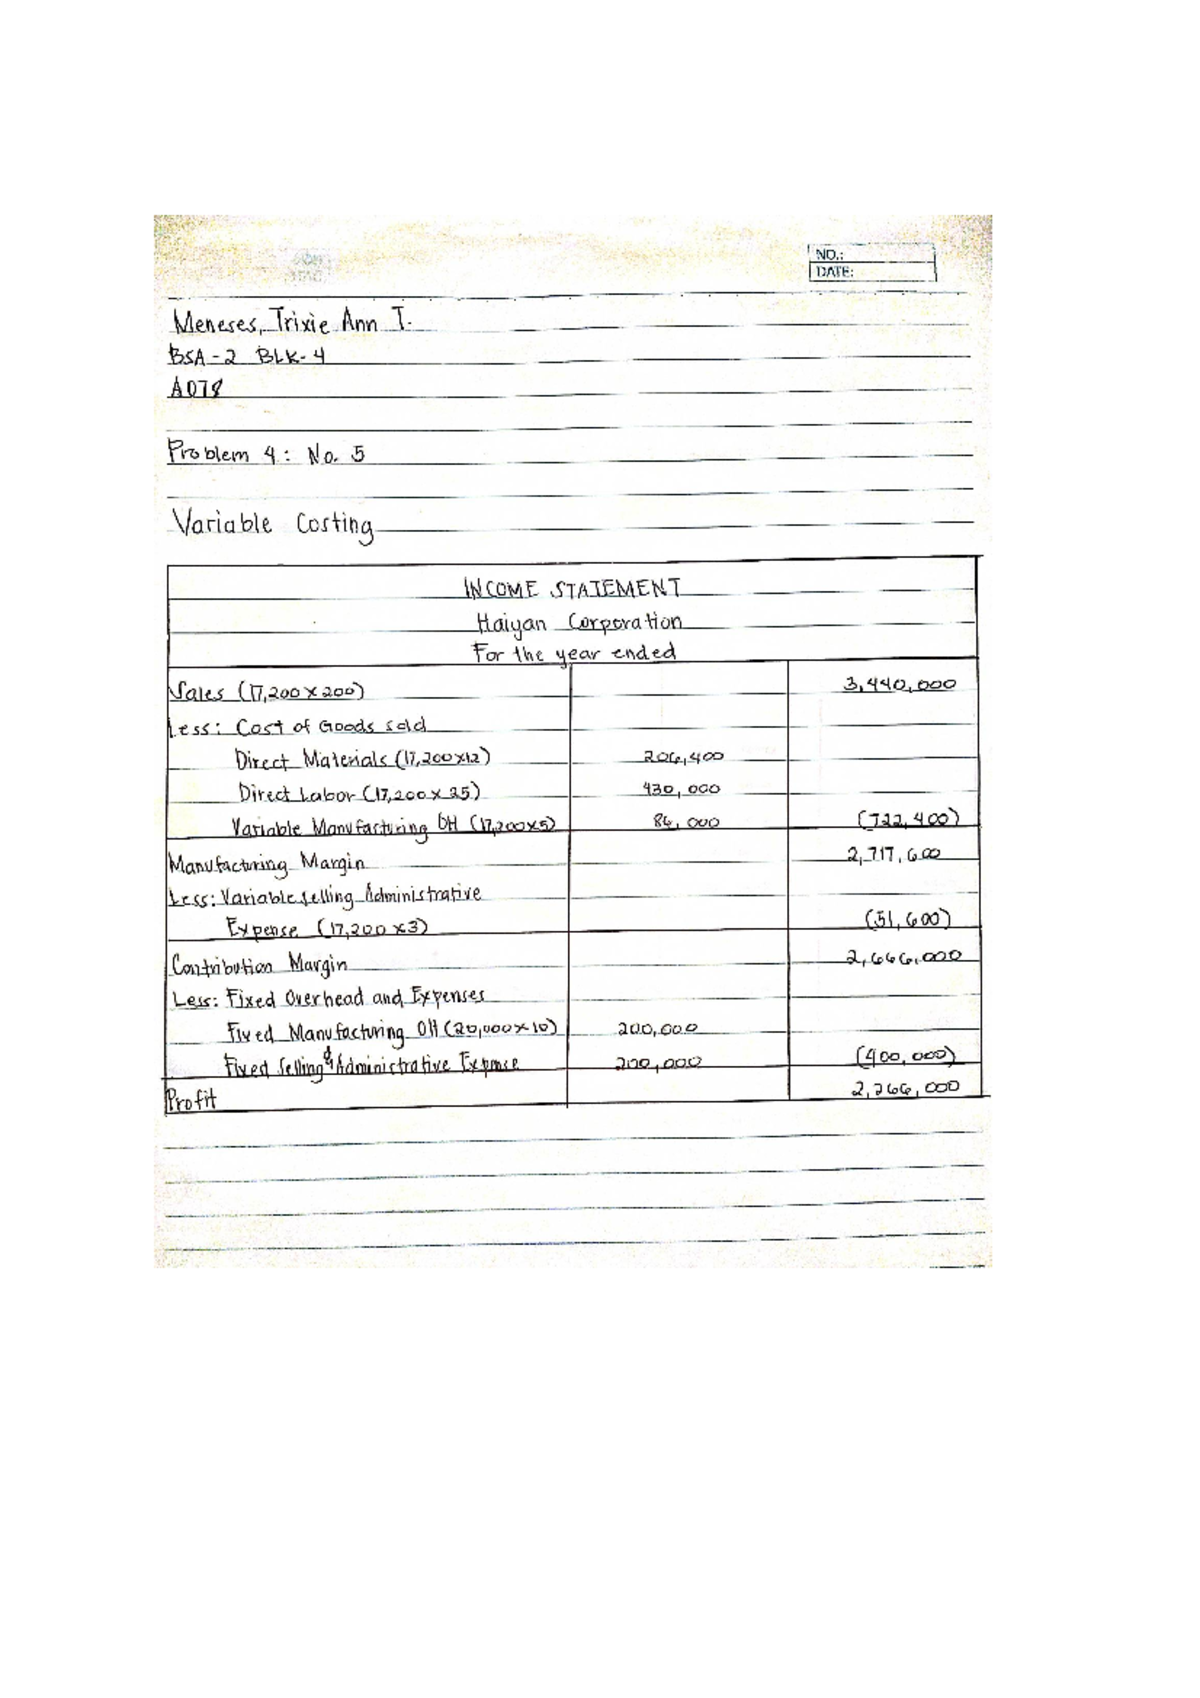 NO.:
DATE:
Meneses, Trixie Ann T.
BSA-2 BLK-4
A078
Problem 4: No. 5
Variable Costing
INCOME STATEMENT
Haiyan Corporation
For the year ended
Sales (17,200 x 200) 3,440,000
Less: Cost of Goods sold
Direct Materials (17,200x12) 206,400
Direct Labor (17,200 x 25) 430,000
Variable Manufacturing OH (17,200x5) 86,000 (722,400)
Manufacturing Margin 2,717,600
Less: Variable selling Administrative
Expense (17,200 x3) (51,600)
Contribution Margin 2,666,000
Less: Fixed Overhead and Expenses
Fixed Manufacturing OH (20,000x10) 200,000
Fixed Selling & Administrative Expense 200,000 (400,000)
Profit 2,266,000